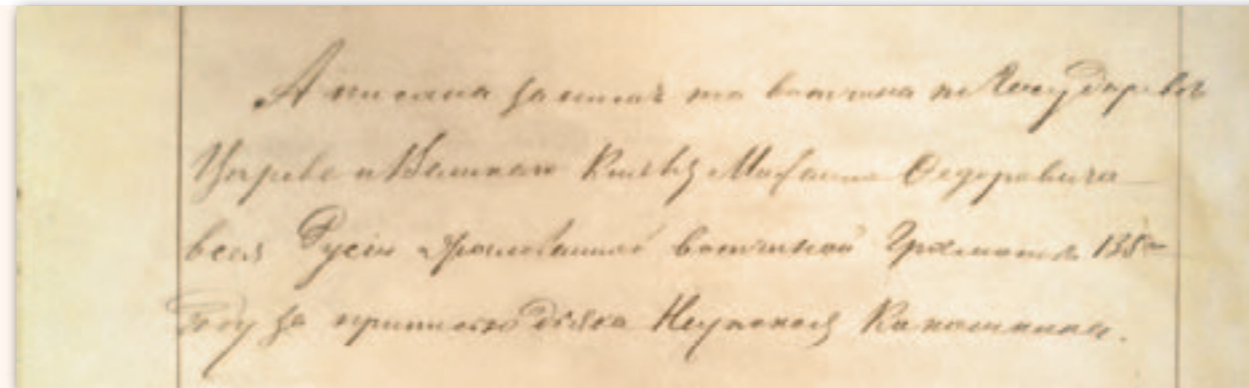 А писана за ним та вотчина по Государевѣ
Цареве и Великаго Князя Михаила Ѳедоровича
всея Русіи жалованной вотчинной Грамоте 135<sup>го</sup>
Году за приписью дьяка Неупокоя Кокошкина.